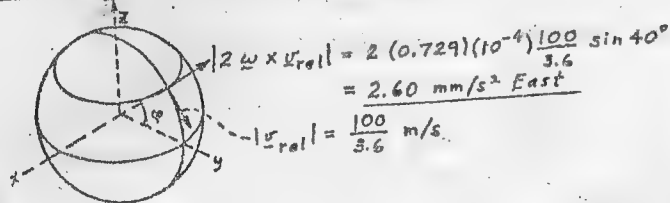 z
|2 ω × v_rel| = 2 (0.729)(10⁻⁴) 100/3.6 sin 40°
= 2.60 mm/s² East
φ
|v_rel| = 100/3.6 m/s
x
y